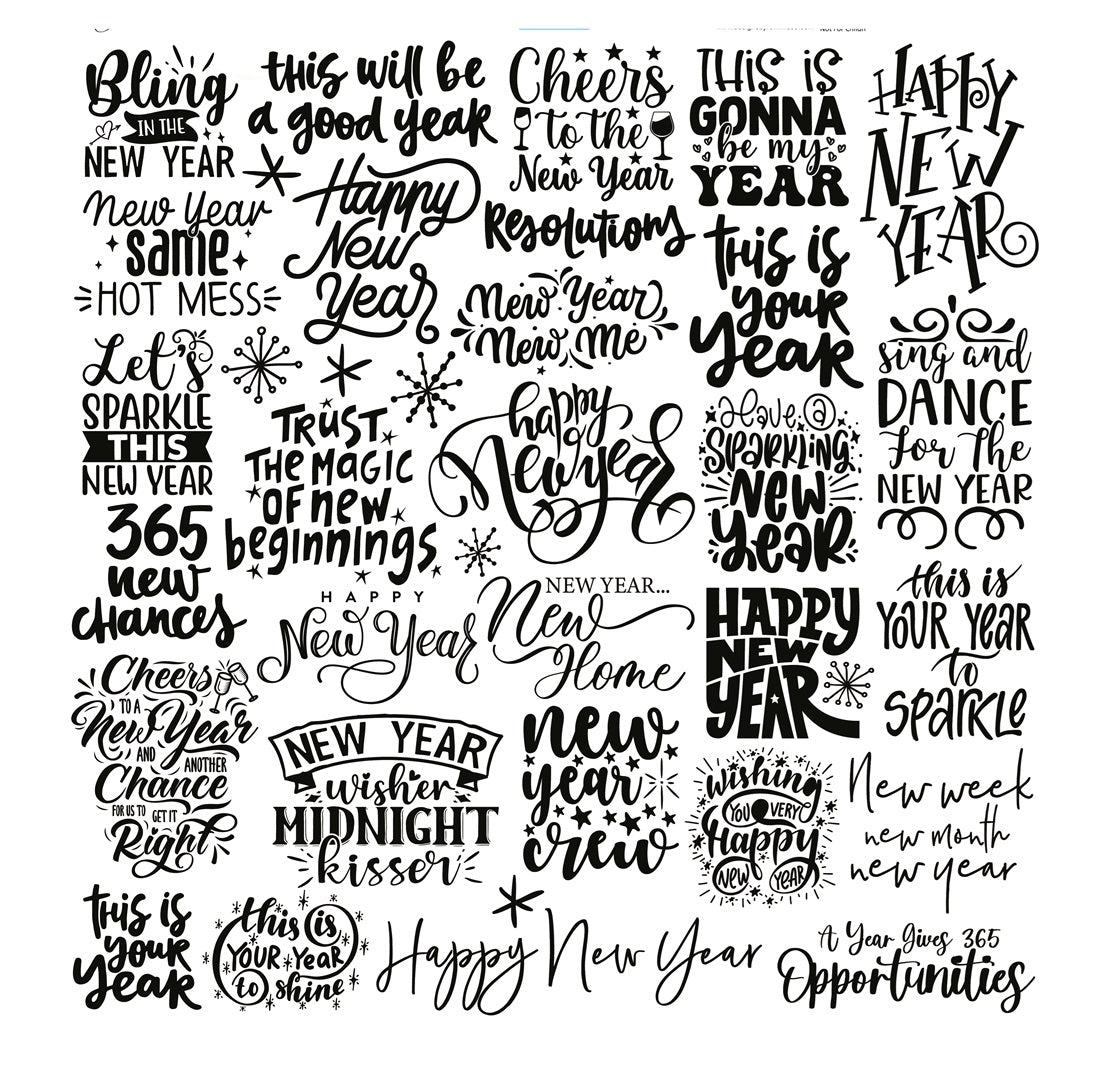 Not For Criant
Bling
IN THE
NEW YEAR
this will be
a good year
Cheers
to the
New Year
THIS IS
GONNA
be my
YEAR
HAPPY
NEW
YEAR
New Year
same
HOT MESS
Happy
New
Year
Resolutions
New Year
New Me
this is
your
year
sing and
DANCE
For The
NEW YEAR
Let's
SPARKLE
THIS
NEW YEAR
TRUST
THE MAGIC
OF new
beginnings
happy
New year
Have a
SPARKLING
New
Year
365
new
chances
HAPPY
New Year
NEW YEAR...
New
Home
HAPPY
NEW
YEAR
this is
YOUR YeaR
to
SPARKLE
Cheers
TO A
New Year
AND ANOTHER
Chance
FOR US TO GET IT
Right
NEW YEAR
wisher
MIDNIGHT
kisser
new
year
crew
wishing
YOU VERY
Happy
NEW YEAR
New week
new month
new year
this is
your
year
this is
YOUR YeaR
to shine
Happy New Year
A Year Gives 365
Opportunities